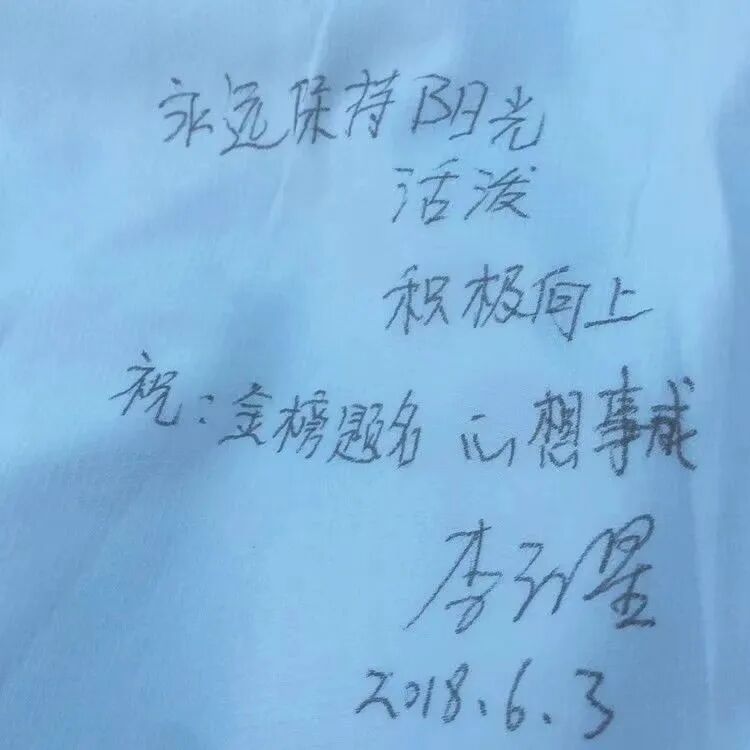 永远保持阳光
活泼
积极向上
祝:金榜题名 心想事成
李 星
2018.6.3